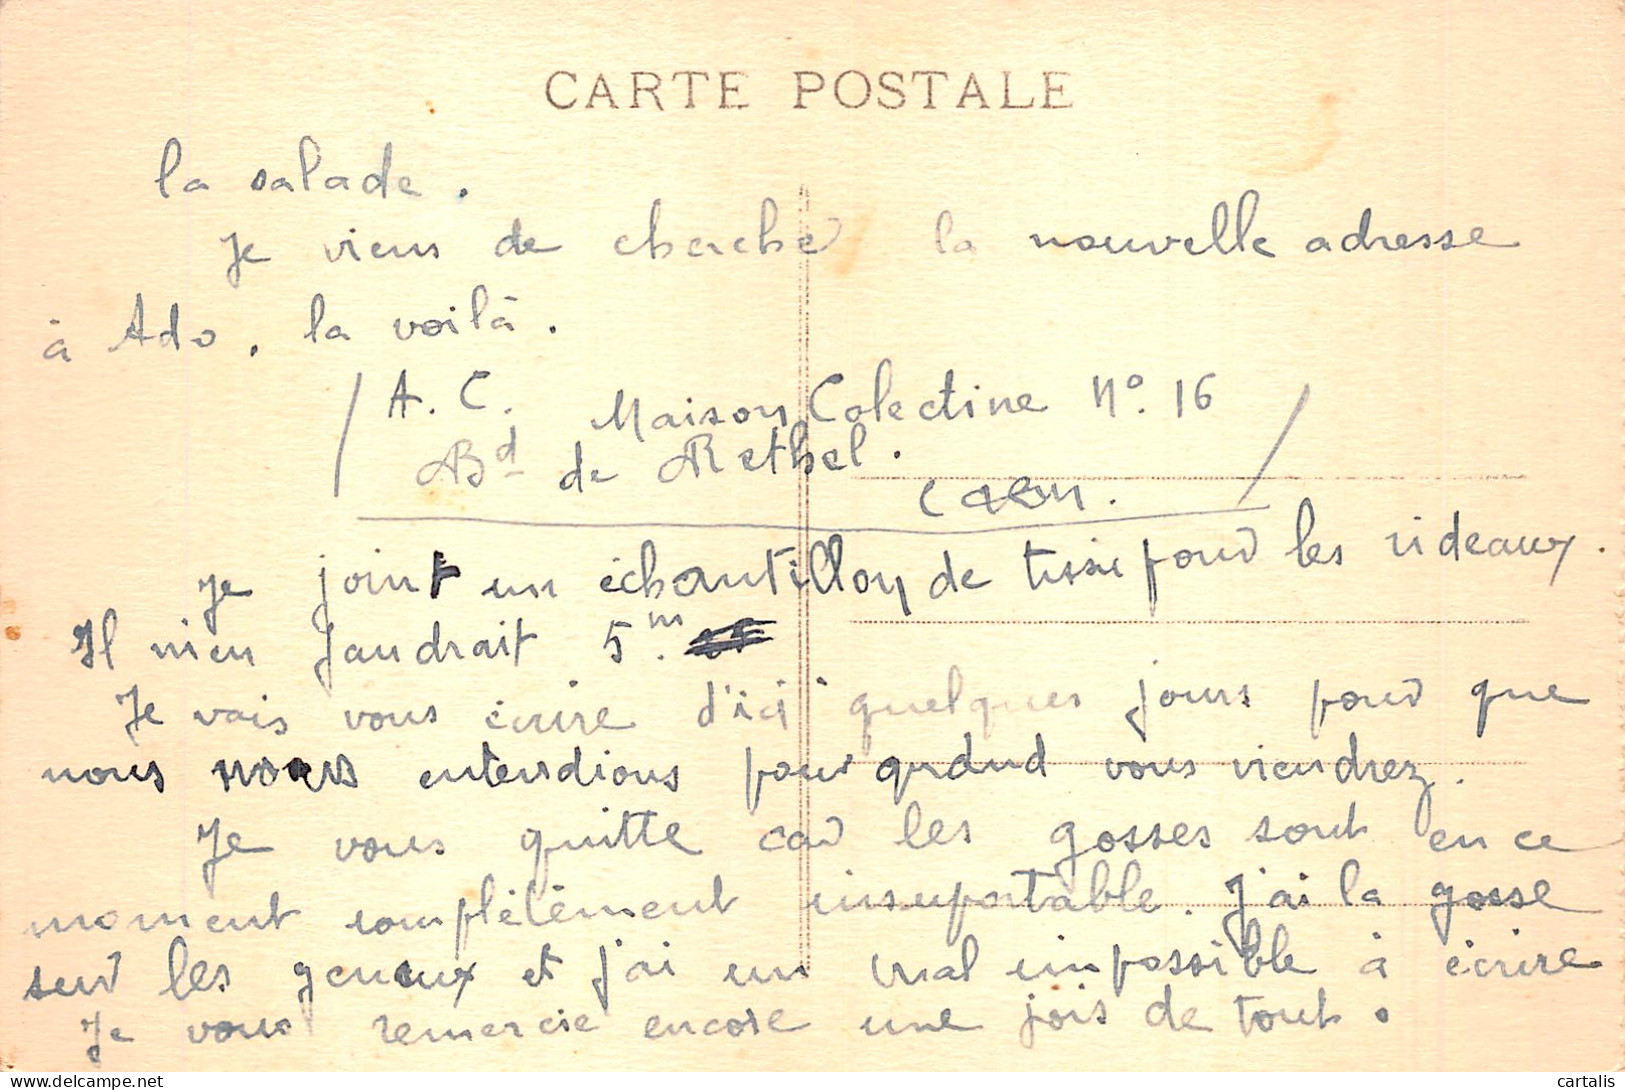 CARTE POSTALE
la salade.
Je viens de cherche la nouvelle adresse
à Ado, la voilà.
A. C. Maison Colectine N°. 16
Bd de Rethel.
Caen.
Je joint un échantillon de tissu pour les rideaux.
Il m'en faudrait 5 m.
Je vais vous écrire d'ici quelques jours pour que
nous nous entendions pour quand vous viendrez.
Je vous quitte car les gosses sont en ce
moment complétement insuportable. J'ai la gosse
sur les genoux et j'ai un mal impossible à écrire
Je vous remercie encore une fois de tout.
cartalis